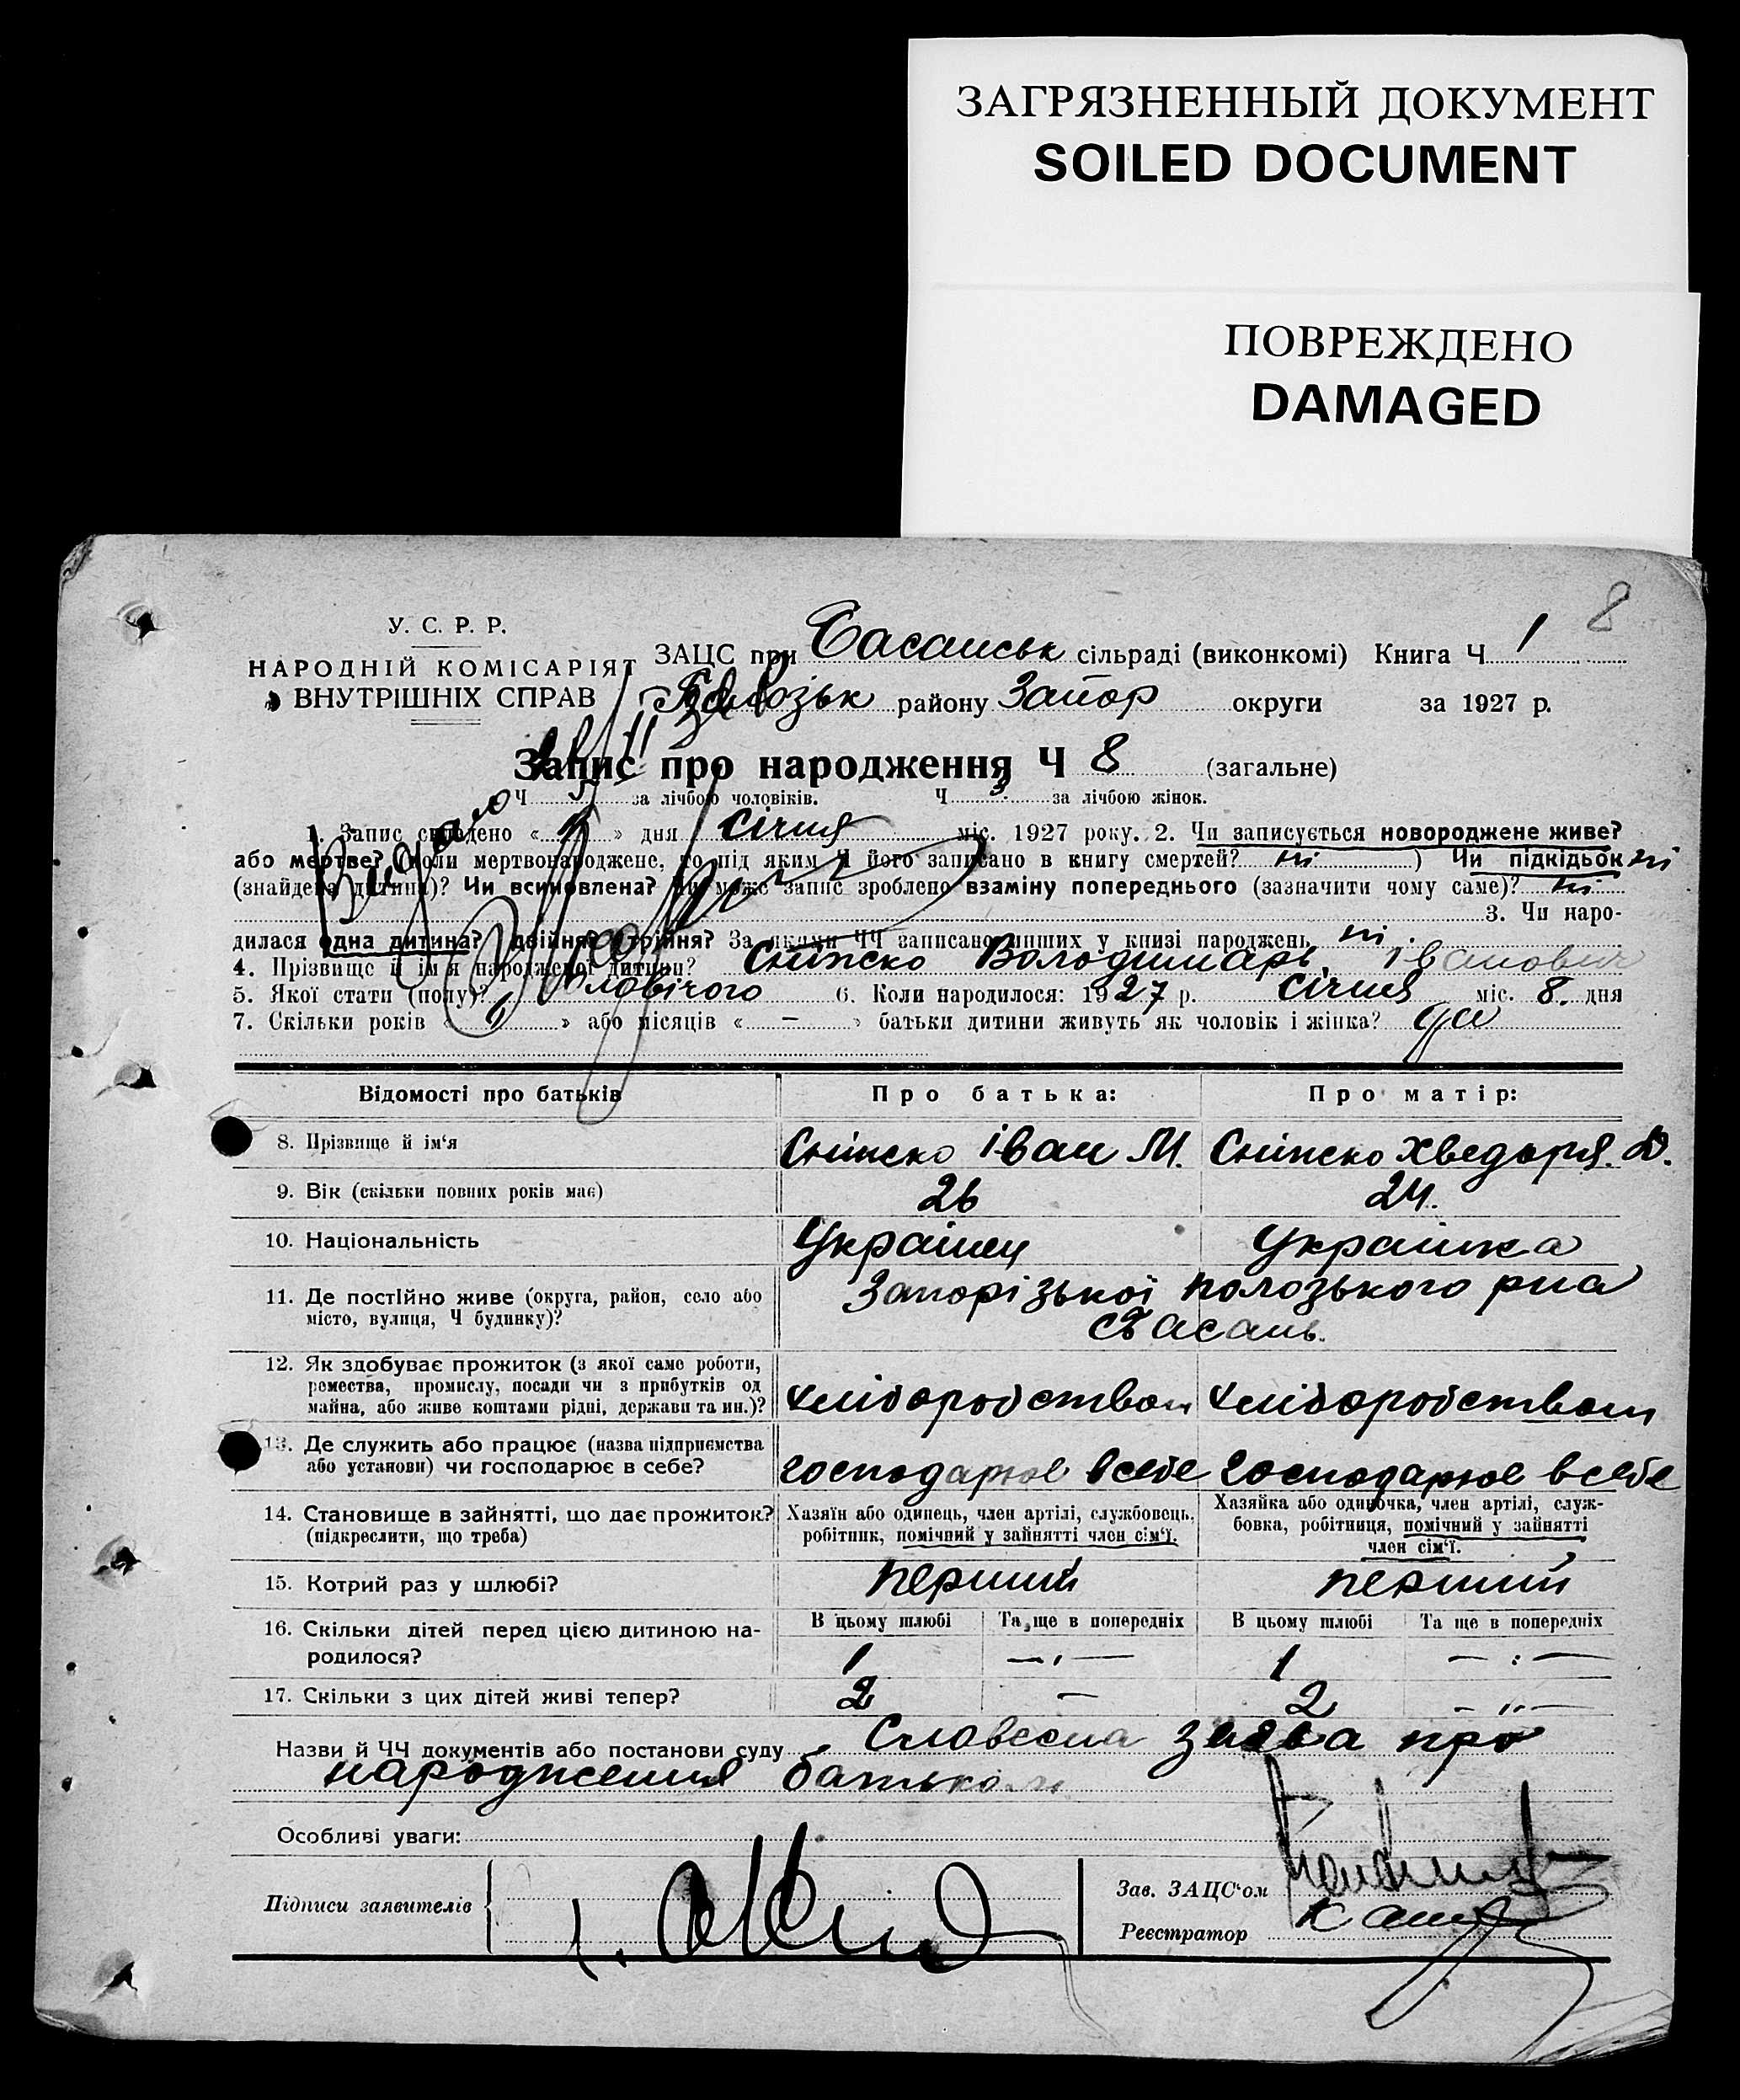 ЗАГРЯЗНЕННЫЙ ДОКУМЕНТ
SOILED DOCUMENT
ПОВРЕЖДЕНО
DAMAGED
8
У. С. Р. Р.
НАРОДНІЙ КОМІСАРІЯТ
ВНУТРІШНІХ СПРАВ
ЗАЦС при Басанськ сільраді (виконкомі) Книга Ч 1
району Запор округи за 1927 р.
Запис про народження Ч 8 (загальне)
Ч 5 за лічбою чоловіків. Ч 3 за лічбою жінок.
1. Запис складено « » дня січня міс. 1927 року. 2. Чи записується новороджене живе?
або мертве? (коли мертвонароджене, то під яким Ч його записано в книгу смертей? ні ) Чи підкідьок ні
(знайдена дитина)? Чи всиновлена? Чи може запис зроблено взаміну попереднього (зазначити чому саме)? ні
3. Чи наро-
дилася одна дитина? двійня? трійня? За якими ЧЧ записано инших у книзі народжень ні.
4. Прізвище й ім'я народженої дитини? Сніжко Володимарь Іванович
5. Якої стати (полу)? Чоловічого 6. Коли народилося: 1927 р. Січня міс. 8. дня
7. Скільки років « » або місяців « – » батьки дитини живуть як чоловік і жінка? да
Відомості про батьків
Про батька:
Про матір:
8. Прізвище й ім'я
Сніжко Іван М.
Сніжко Хведоря. Д.
9. Вік (скільки повних років має)
26
24.
10. Національність
Українец
Українка
11. Де постійно живе (округа, район, село або
місто, вулиця, Ч будинку)?
Запорізької Полозького рна
с Басань.
12. Як здобуває прожиток (з якої саме роботи,
ремества, промислу, посади чи з прибутків од
майна, або живе коштами рідні, держави та ин.)?
хліборобством
хліборобством
13. Де служить або працює (назва підприємства
або установи) чи господарює в себе?
господарює всебе
господарює всебе
14. Становище в зайнятті, що дає прожиток?
(підкреслити, що треба)
Хазяїн або одинець, член артілі, службовець,
робітник, помічний у зайнятті член сім'ї.
Хазяйка або одиночка, член артілі, служ-
бовка, робітниця, помічний у зайнятті
член сім'ї.
15. Котрий раз у шлюбі?
перший
перший
16. Скільки дітей перед цією дитиною на-
родилося?
В цьому шлюбі
Та ще в попередніх
В цьому шлюбі
Та ще в попередніх
1
1
17. Скільки з цих дітей живі тепер?
2
–
2
Назви й ЧЧ документів або постанови суду Словесна заява про
народження батьком
Особливі уваги:
Підписи заявителів
Зав. ЗАЦС'ом
Реєстратор